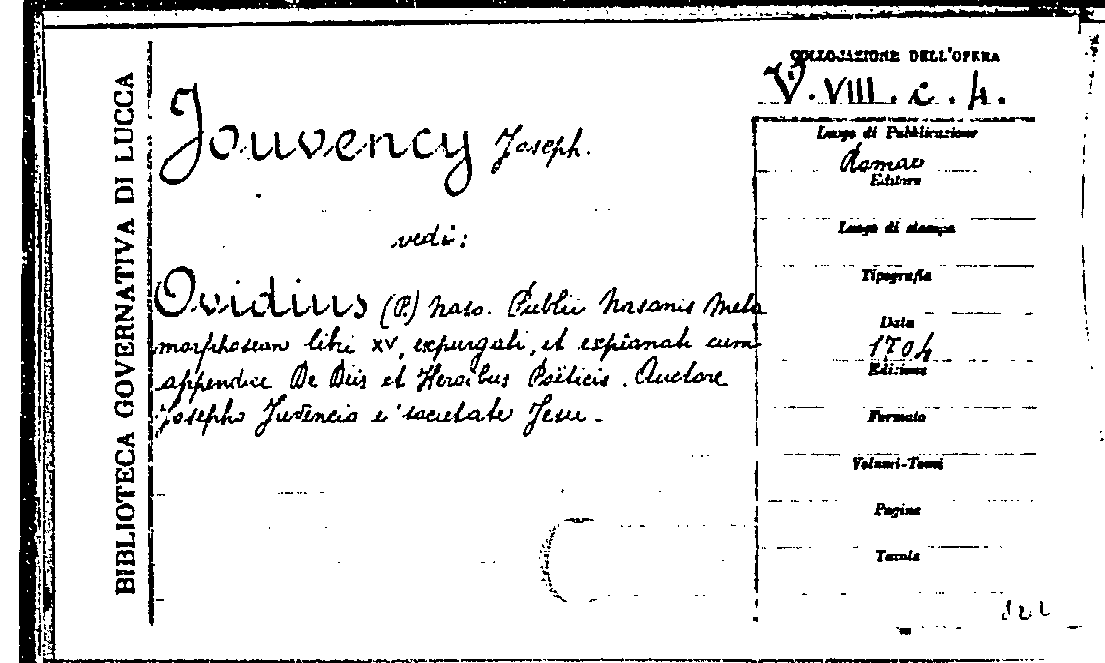 BIBLIOTECA GOVERNATIVA DI LUCCA
Jouvency Joseph.
vedi:
Ovidius (P.) Naso. Publii Nasonis Meta
morphoseon libri XV, expurgati, et explanati cum
appendice De Diis et Heroibus Poëticis. Auctore
Josepho Juvencio e' societate Jesu.
COLLOCAZIONE DELL'OPERA
V. VIII. c. 4.
Luogo di Pubblicazione
Romae
Editore
Luogo di stampa
Tipografia
Data
1704
Edizione
Formato
Volumi-Tomi
Pagine
Tavole